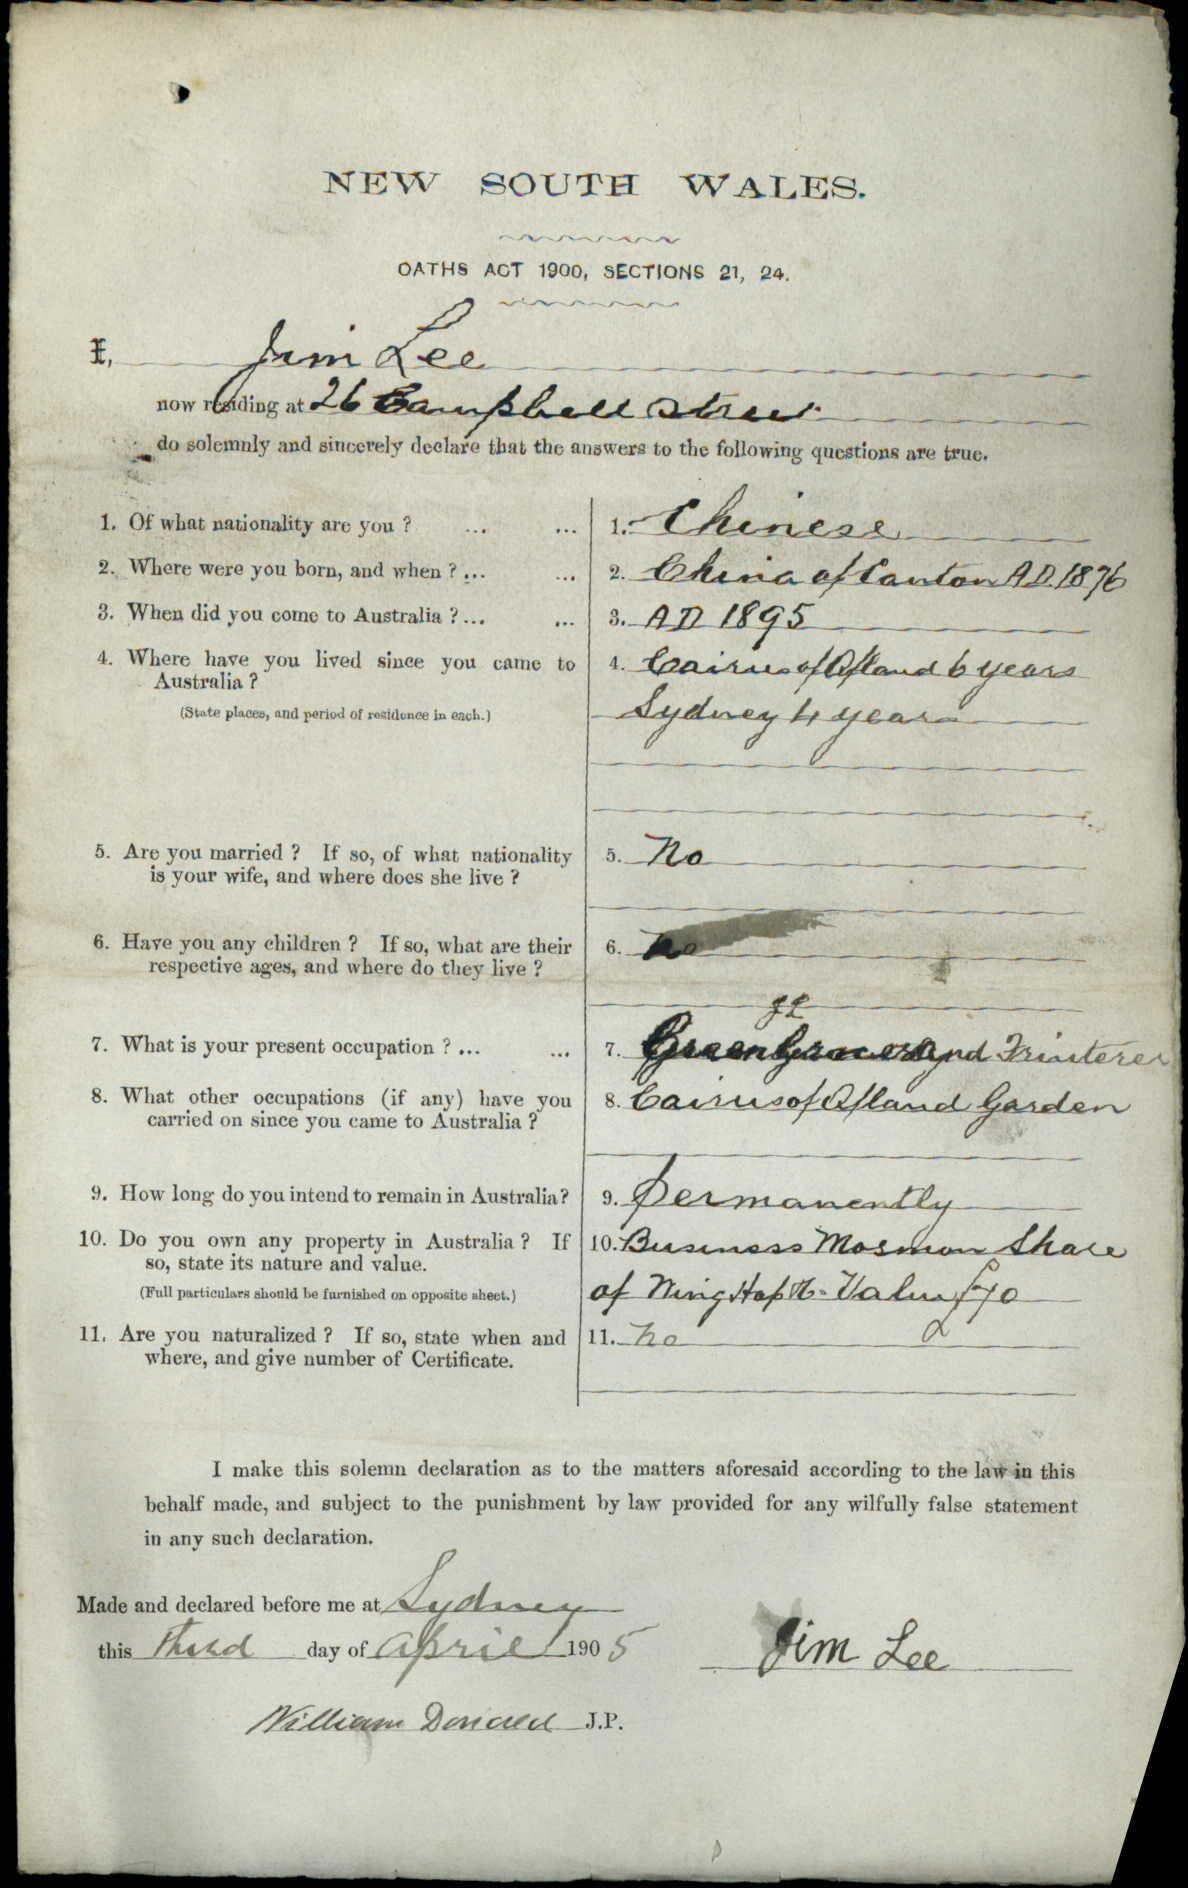 NEW SOUTH WALES.
OATHS ACT 1900, SECTIONS 21, 24.
I, Jim Lee
now residing at 26 Campbell Street
do solemnly and sincerely declare that the answers to the following questions are true.
1. Of what nationality are you ? ... ... 1. Chinese
2. Where were you born, and when ? ... ... 2. China of Canton A.D. 1876
3. When did you come to Australia ? ... ... 3. AD 1895
4. Where have you lived since you came to 4. Cairns of Qfland 6 years
Australia ?
(State places, and period of residence in each.) Sydney 4 years
5. Are you married ? If so, of what nationality 5. No
is your wife, and where does she live ?
6. Have you any children ? If so, what are their 6. No
respective ages, and where do they live ?
JL
7. What is your present occupation ? ... ... 7. Green Grocer and Fruiterer
8. What other occupations (if any) have you 8. Cairns of Qfland Garden
carried on since you came to Australia ?
9. How long do you intend to remain in Australia? 9. Permanently
10. Do you own any property in Australia ? If 10. Business Mosman Share
so, state its nature and value.
(Full particulars should be furnished on opposite sheet.) of Ning Hop Value £70
11. Are you naturalized ? If so, state when and 11. No
where, and give number of Certificate.
I make this solemn declaration as to the matters aforesaid according to the law in this
behalf made, and subject to the punishment by law provided for any wilfully false statement
in any such declaration.
Made and declared before me at Sydney
this Third day of April 1905
Jim Lee
William Donald J.P.